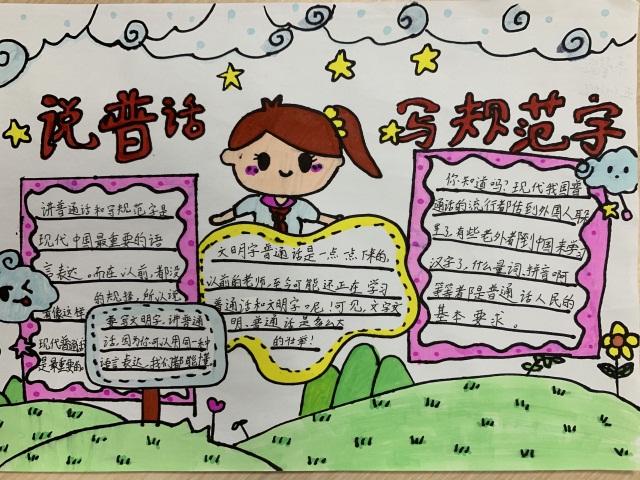 说普话
写规范字
讲普通话和写规范字是
现代中国最重要的语
言表达。而在以前，都没
的规 ，所以说
像这样
现代普通
是最重要的
要写文明字，讲普通
话，因为你可以用同一种
语言表达，我们都能懂
文明字普通话是一点一点 来的，
以前的老师，至今可能还正在学习
普通话和文明字呢！可见，文字文
明、普通话是多么大
的 事！
你知道吗？现代我国普
通话的流行都传到外国人
里了，有些老外都到中国来学习
汉字了，什么量词、拼音啊
等等都是普通话人民的
基本要求。